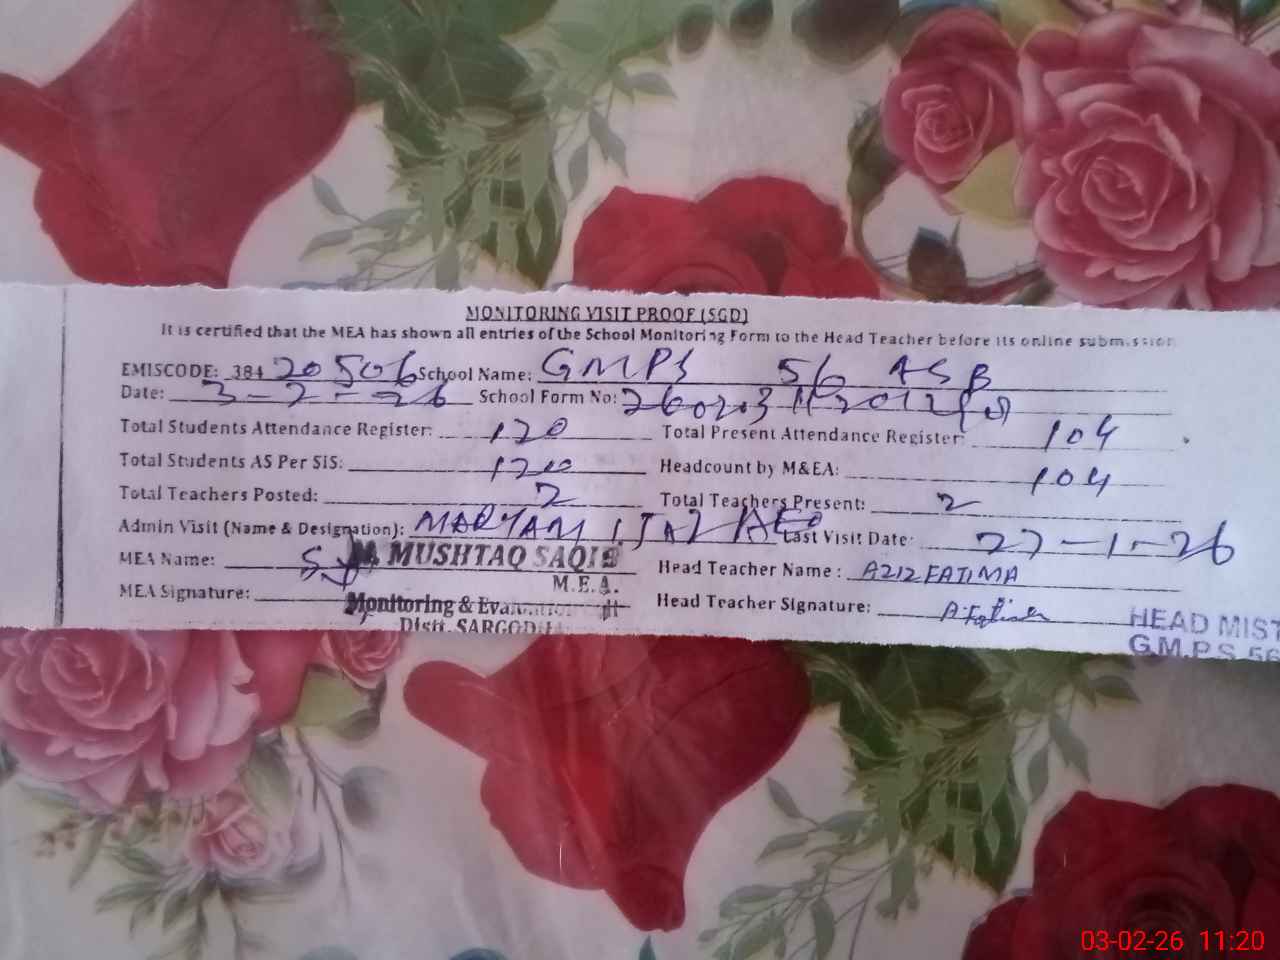 MONITORING VISIT PROOF (SGD)
It is certified that the MEA has shown all entries of the School Monitoring Form to the Head Teacher before its online submission
EMISCODE: 384 20506 School Name: GMPS 56 ASB
Date: 3-2-26 School Form No:
Total Students Attendance Register: 120 Total Present Attendance Register: 104
Total Students AS Per SIS: 120 Headcount by M&EA: 104
Total Teachers Posted: 2 Total Teachers Present: 2
Admin Visit (Name & Designation): MARYAM IJAZ AEO Last Visit Date: 27-1-26
MEA Name: M. MUSHTAQ SAQIB Head Teacher Name: AZIZ FATIMA
M.E.A.
MEA Signature: Monitoring & Head Teacher Signature: A.Fatima
Distt. SARGODHA
HEAD MIST
G.M.P.S 56
03-02-26 11:20